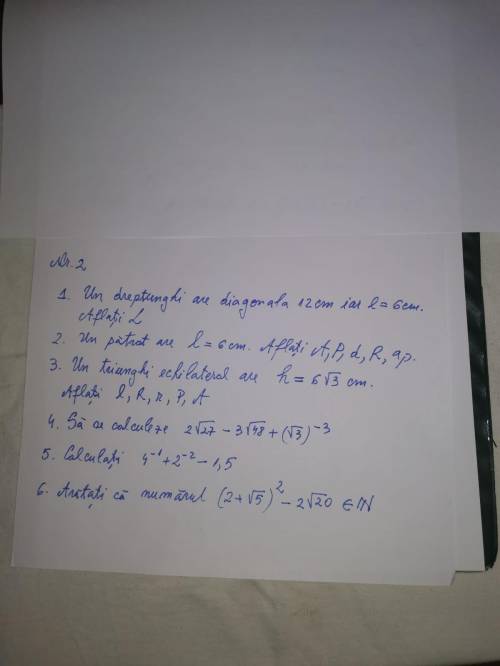 Nr. 2
1. Un dreptunghi are diagonala 12 cm iar l = 6 cm.
Aflați L
2. Un pătrat are l = 6 cm. Aflați A, P, d, R, ap.
3. Un triunghi echilateral are h = 6√3 cm.
Aflați l, R, r, P, A
4. Să se calculeze 2√27 - 3√48 + (√3)⁻³
5. Calculați 4⁻¹ + 2⁻² - 1,5
6. Arătați că numărul (2 + √5)² - 2√20 ∈ ℕ